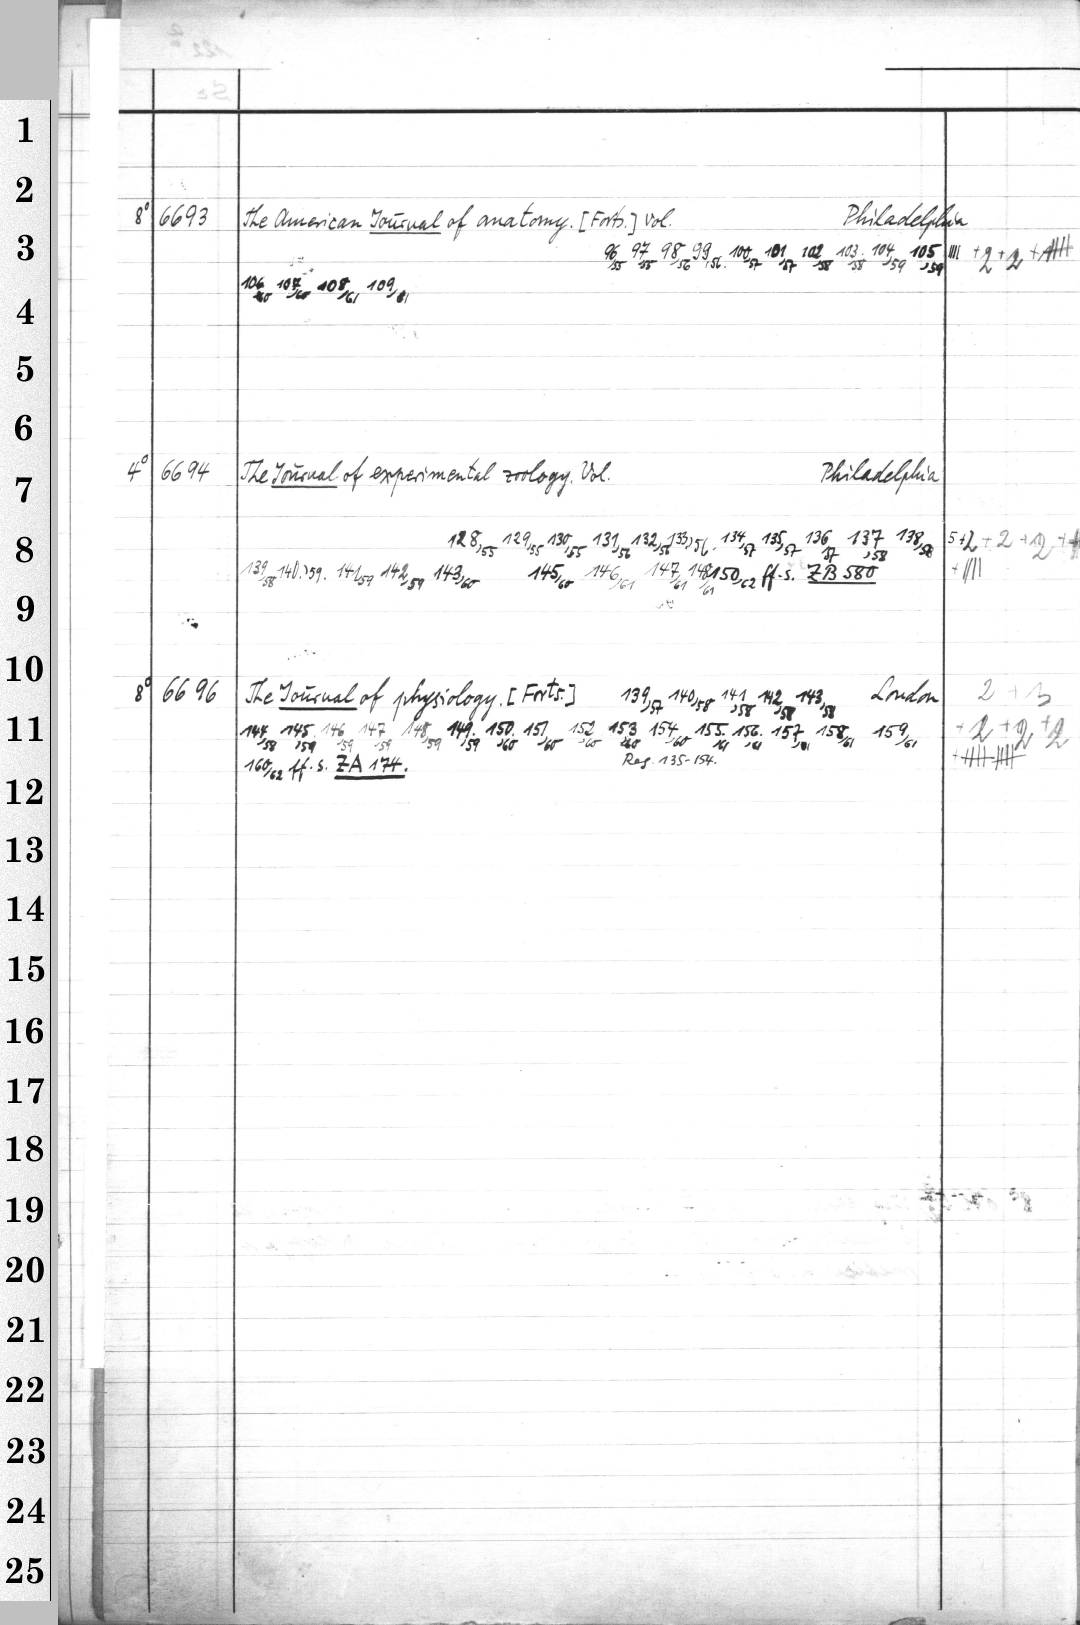 1
2
8° 6693 The American Journal of anatomy. [Forts.] Vol. Philadelphia
3
96,55 97,55 98,56 99,56. 100,57 101,57 102,58 103,58 104,59 105,59 |||| +2 +2 +
106,60 107,60 108,61 109,61
4
5
6
4° 6694 The Journal of experimental zoology. Vol. Philadelphia
7
8
128,55 129,55 130,55 131,56 132,56 133,56. 134,57 135,57 136,57 137,58 138,58 5+2+2+2+
139,58 140,59. 141,59 142,59 143,60 145,60 146,61 147,61 148,61 150,62 ff. s. ZB 580 + ||||
9
10
8° 6696 The Journal of physiology. [Forts.] 139,57 140,58 141,58 142,58 143,58 London 2 + 3
11
144,58 145,59 146,59 147,59 148,59 149,59 150,60 151,60 152,60 153,60 154,60 155,61 156,61 157,61 158,61 159,61 +2 +2 +2
160,62 ff. s. ZA 174. Reg. 135-154.
12
13
14
15
16
17
18
19
20
21
22
23
24
25